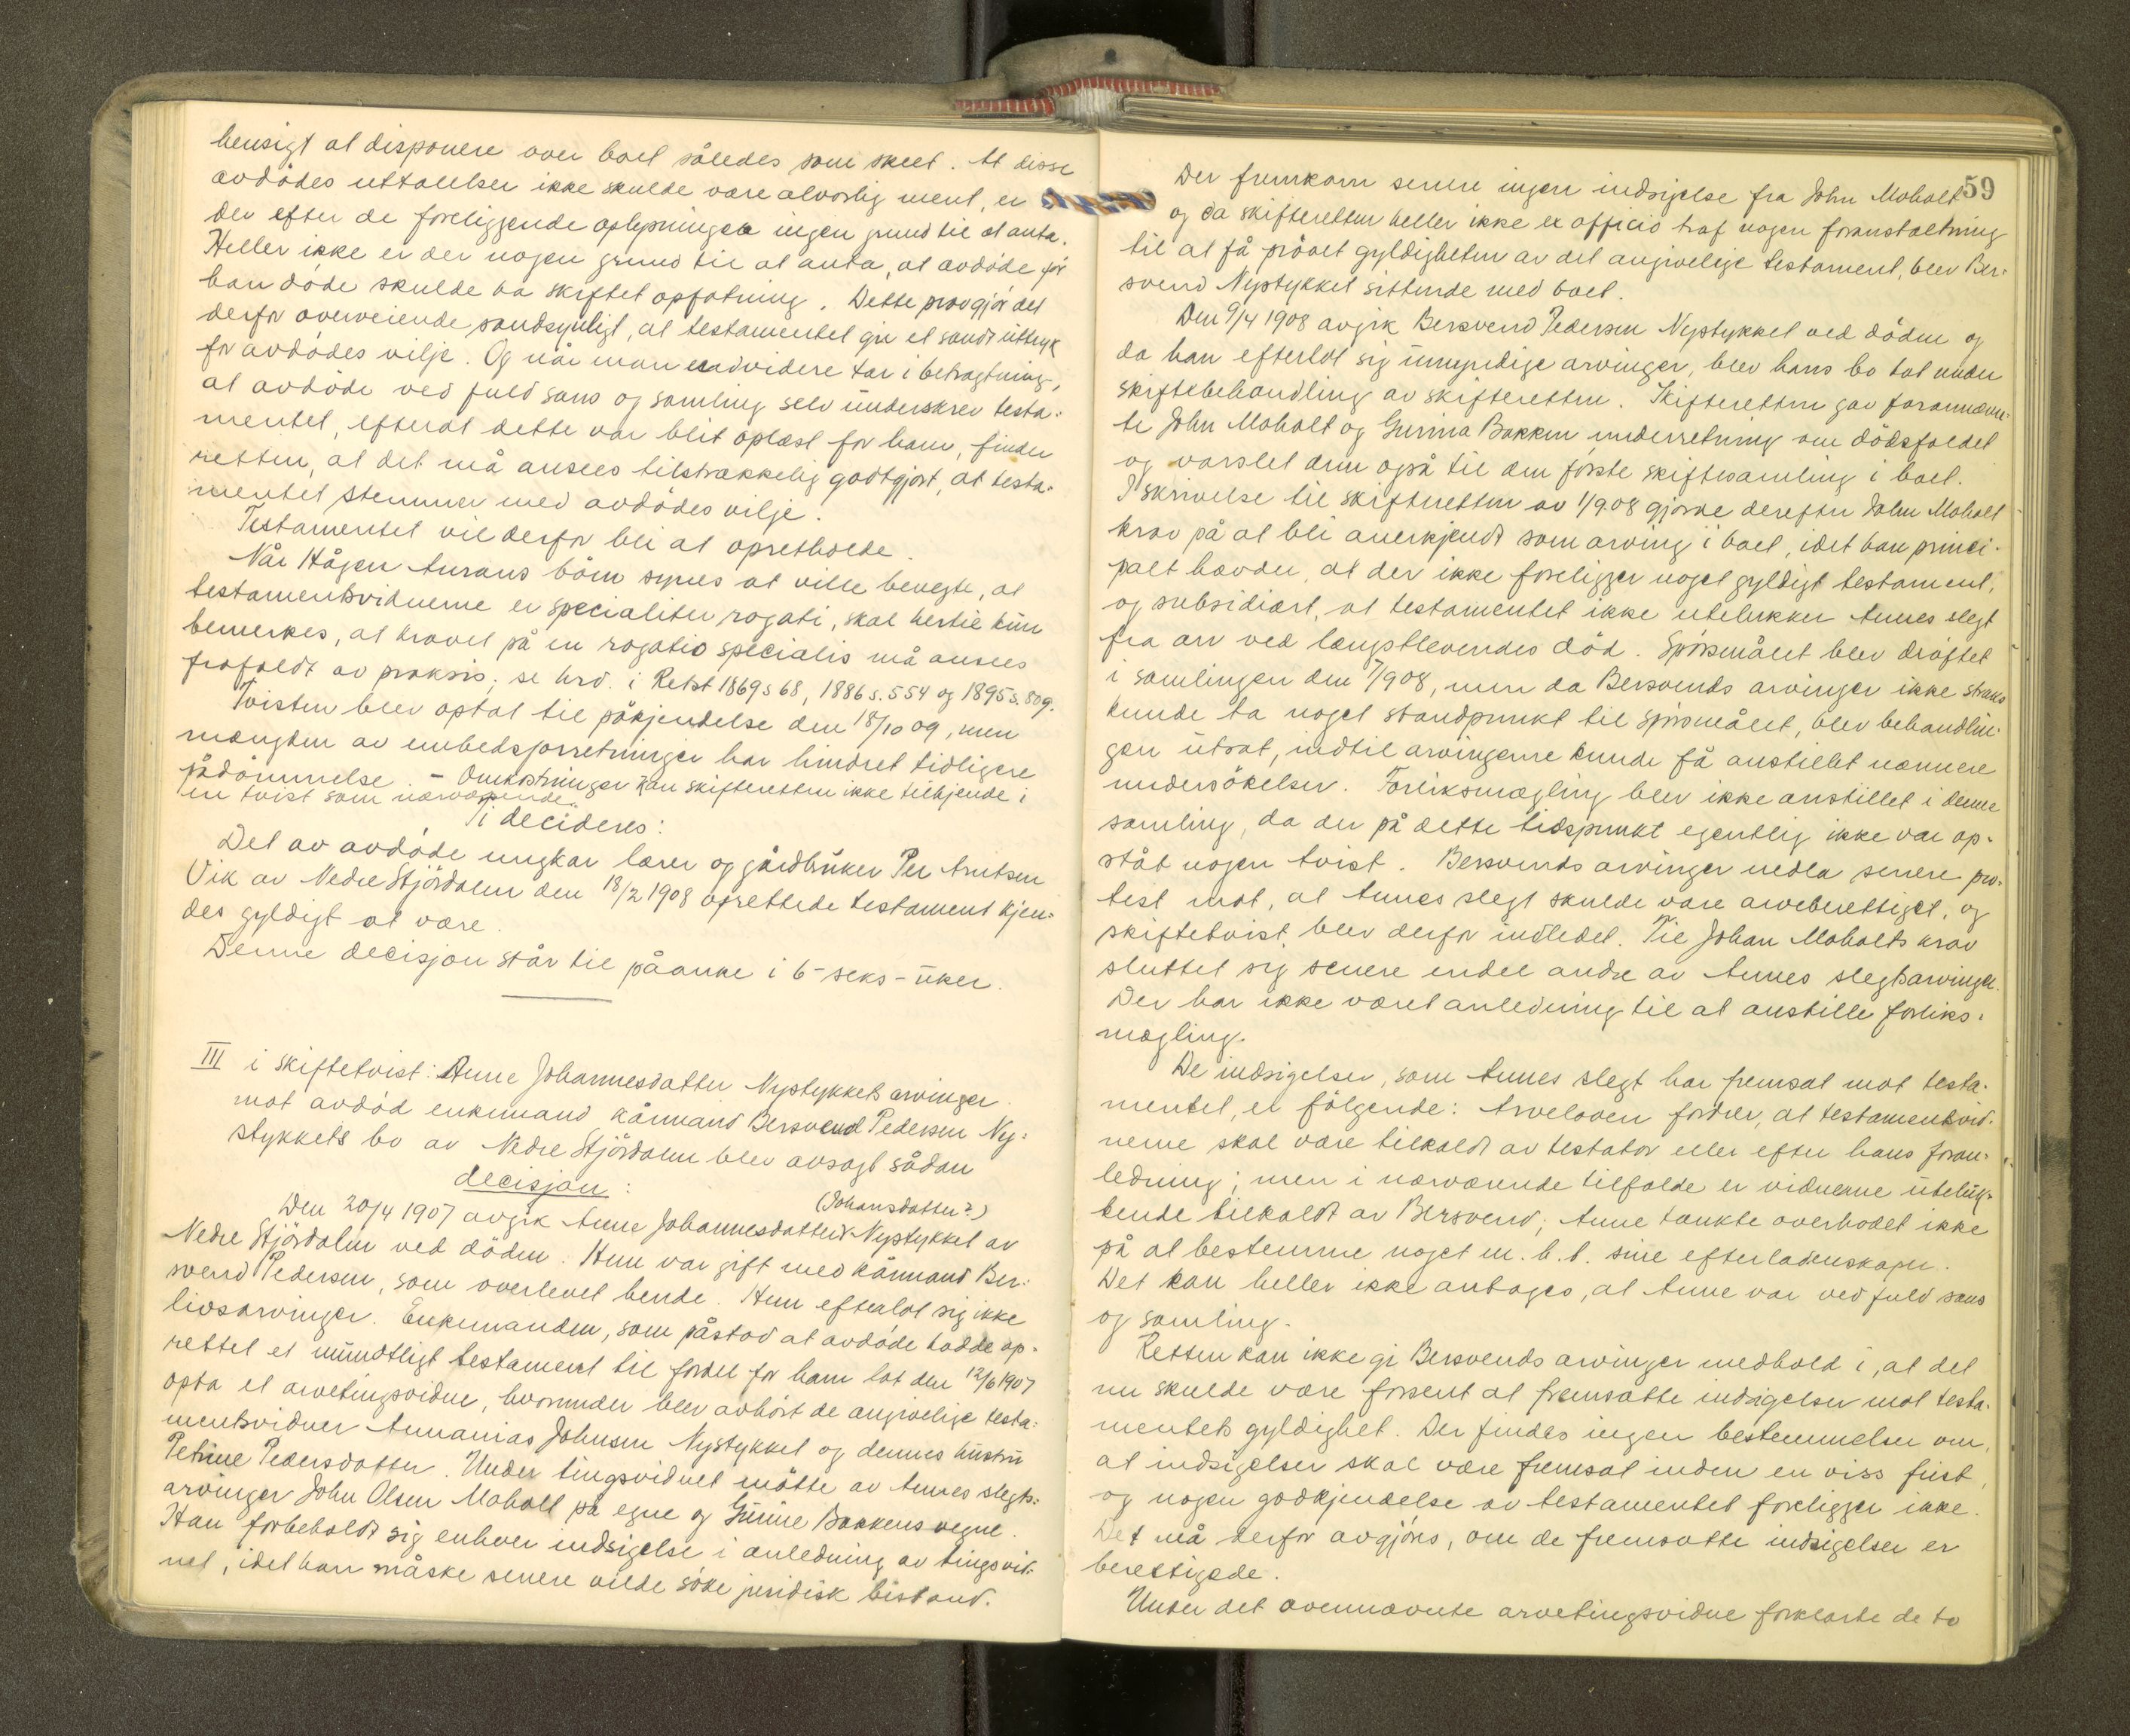 hensigt at disponere over boet således som skeet. At disse
avdödes uttalelser ikke skulde være alvorlig ment, er
der efter de foreliggende oplysninger ingen grund til at anta.
Heller ikke er der nogen grund til at anta, at avdöde för
han döde skulde ha skiftet opfatning. Dette gjör det
derfor overveiende sandsynligt, at testamentet gir et sandt uttryk
for avdödes vilje. Og når man endvidere tar i betragtning,
at avdöde ved fuld sans og samling selv underskrev testa-
mentet, efterat dette var blit oplæst for ham, finder
retten, at det må ansees tilstrækkelig godtgjort, at testa-
mentet stemmer med avdödes vilje.
Testamentet vil derfor bli at opretholde.
Når Hågen Aurans börn synes at ville benegte, at
testamentsvidnerne er specialiter rogati, skal hertil kun
bemerkes, at kravet på en rogatio specialis må ansees
frafaldt av praksis; se hrd. i Retst 1869 s 68, 1886 s. 554 og 1895 s. 809.
Tvisten blev optat til påkjendelse den 18/10 09, men
mængden av embedsforretninger har hindret tidligere
pådömmelse. – Omkostninger kan skifteretten ikke tilkjende i
en tvist som nærværende.
Ti decideres:
Det av avdöde ungkar lærer og gårdbruker Per Arntsen
Vik av Nedre Stjördalen den 18/2 1908 oprettede testament kjen-
des gyldigt at være.
Denne decisjon står til påanke i 6 - seks - uker.
III i skiftetvist: Anne Johannesdatter Nystykkets arvinger
mot avdöd enkemand kårmand Bersvend Pedersen Ny-
stykkets bo av Nedre Stjördalen blev avsagt sådan
decisjon:
(Johansdatter?)
Den 20/4 1907 avgik Anne Johannesdatter Nystykket av
Nedre Stjördalen ved döden. Hun var gift med kårmand Ber-
svend Pedersen, som overlevet hende. Hun efterlot sig ikke
livsarvinger. Enkemanden, som påstod at avdöde hadde op-
rettet et mundtligt testament til fordel for ham lot den 12/6 1907
opta et arvetingsvidne, hvorunder blev avhört de angivelige testa-
mentsvidner Annanias Johnsen Nystykket og dennes hustru
Petrine Pedersdatter. Under tingsvidnet mötte av Annes slegts-
arvinger John Olsen Moholt på egne og Gurine Bakkens vegne.
Han forbeholdt sig enhver indsigelse i anledning av tingsvid-
net, idet han måske senere vilde söke juridisk bistand.
59
Der fremkom senere ingen indsigelse fra John Moholt
og da skifteretten heller ikke ex officio traf nogen foranstaltning
til at få prövet gyldigheten av det angivelige testament, blev Ber-
svend Nystykket sittende med boet.
Den 9/4 1908 avgik Bersvend Pedersen Nystykket ved döden og
da han efterlot sig umyndige arvinger, blev hans bo tat under
skiftebehandling av skifteretten. Skifteretten gav forannævn-
te John Moholt og Gurina Bakken underretning om dödsfaldet
og varslet dem også til den förste skiftesamling i boet.
I skrivelse til skifteretten av 1/9 08 gjorde derefter John Moholt
krav på at bli anerkjendt som arving i boet, idet han princi-
palt hævder, at der ikke foreligger noget gyldigt testament,
og subsidiært, at testamentet ikke utelukker Annes slegt
fra arv ved længstlevendes död. Spörsmålet blev dröftet
i samlingen den 7/9 08, men da Bersvends arvinger ikke straks
kunde ta noget standpunkt til spörsmålet, blev behandlin-
gen utsat, indtil arvingerne kunde få anstillet nærmere
undersökelser. Forliksmægling blev ikke anstillet i denne
samling, da der på dette tidspunkt egentlig ikke var op-
ståt nogen tvist. Bersvends arvinger nedla senere pro-
test mot, at Annes slegt skulde være arveberettiget, og
skiftetvist blev derfor indledet. Til Johan Moholts krav
sluttet sig senere endel andre av Annes slegtsarvinger.
Der har ikke været anledning til at anstille forliks-
mægling.
De indsigelser, som Annes slegt har fremsat mot testa-
mentet, er fölgende: Arveloven fordrer, at testamentsvid-
nerne skal være tilkaldt av testator eller efter hans foran-
ledning; men i nærværende tilfælde er vidnerne uteluk-
kende tilkaldt av Bersvend; Anne tænkte overhodet ikke
på at bestemme noget m. h. t. sine efterladenskaper.
Det kan heller ikke antages, at Anne var ved fuld sans
og samling.
Retten kan ikke gi Bersvends arvinger medhold i, at det
nu skulde være forsent at fremsætte indsigelser mot testa-
mentets gyldighet. Der findes ingen bestemmelser om,
at indsigelser skal være fremsat inden en viss frist,
og nogen godkjendelse av testamentet foreligger ikke.
Det må derfor avgjöres, om de fremsatte indsigelser er
berettigede.
Under det ovennævnte arvetingsvidne forklarte de to